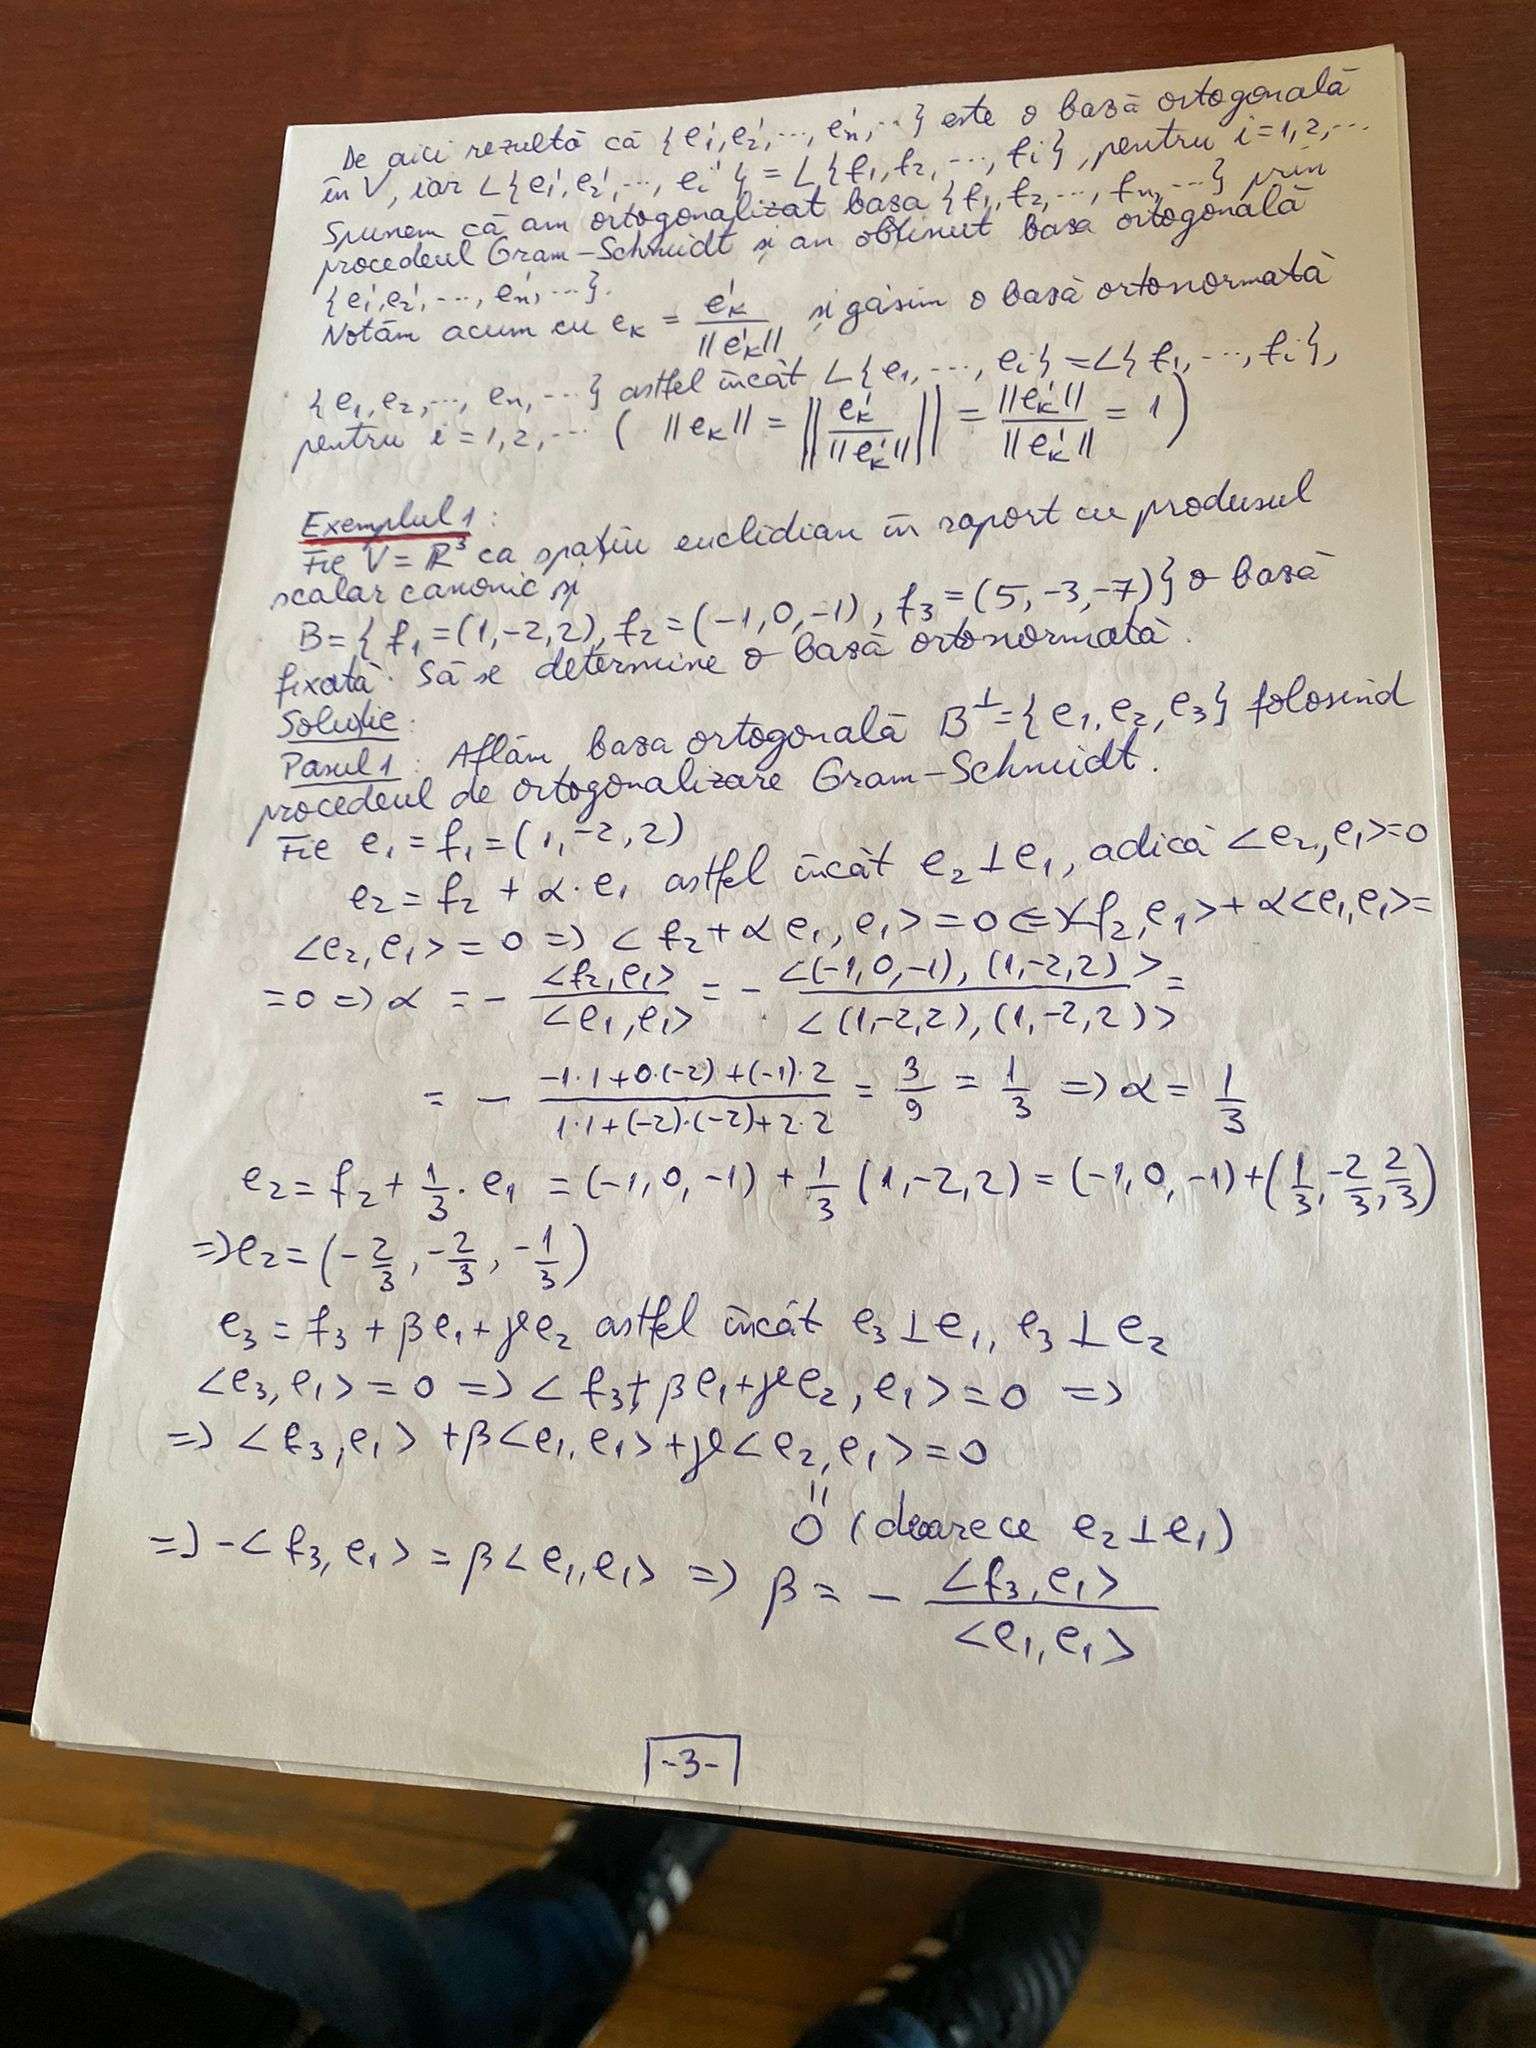 De aici rezultă că {e₁', e₂', ..., eₙ', ...} este o bază ortogonală
în V, iar L{e₁', e₂', ..., eᵢ'} = L{f₁, f₂, ..., fᵢ}, pentru i = 1, 2, ...
Spunem că am ortogonalizat baza {f₁, f₂, ..., fₙ, ...} prin
procedeul Gram-Schmidt și an obținut baza ortogonală
{e₁', e₂', ..., eₙ', ...}.
Notăm acum cu eₖ = eₖ' / ||eₖ'|| și găsim o bază ortonormată
{e₁, e₂, ..., eₙ, ...} astfel încât L{e₁, ..., eᵢ} = L{f₁, ..., fᵢ},
pentru i = 1, 2, ... ( ||eₖ|| = || eₖ' / ||eₖ'|| || = ||eₖ'|| / ||eₖ'|| = 1 )
Exemplul 1:
Fie V = ℝ³ ca spațiu euclidian în raport cu produsul
scalar canonic și
B = { f₁ = (1, -2, 2), f₂ = (-1, 0, -1), f₃ = (5, -3, -7)} o bază
fixată. Să se determine o bază ortonormată.
Soluție:
Pasul 1: Aflăm baza ortogonală B^⊥ = {e₁, e₂, e₃} folosind
procedeul de ortogonalizare Gram-Schmidt.
Fie e₁ = f₁ = (1, -2, 2)
e₂ = f₂ + α · e₁ astfel încât e₂ ⊥ e₁, adică <e₂, e₁> = 0
<e₂, e₁> = 0 => <f₂ + α e₁, e₁> = 0 <=> <f₂, e₁> + α<e₁, e₁> =
= 0 => α = - <f₂, e₁> / <e₁, e₁> = - <(-1, 0, -1), (1, -2, 2)> / <(1, -2, 2), (1, -2, 2)> =
= - (-1·1 + 0·(-2) + (-1)·2) / (1·1 + (-2)·(-2) + 2·2) = 3/9 = 1/3 => α = 1/3
e₂ = f₂ + 1/3 · e₁ = (-1, 0, -1) + 1/3 (1, -2, 2) = (-1, 0, -1) + (1/3, -2/3, 2/3)
=> e₂ = (-2/3, -2/3, -1/3)
e₃ = f₃ + βe₁ + γe₂ astfel încât e₃ ⊥ e₁, e₃ ⊥ e₂
<e₃, e₁> = 0 => <f₃ + βe₁ + γe₂, e₁> = 0 =>
=> <f₃, e₁> + β<e₁, e₁> + γ<e₂, e₁> = 0
"
0 (deoarece e₂ ⊥ e₁)
=> -<f₃, e₁> = β<e₁, e₁> => β = - <f₃, e₁> / <e₁, e₁>
-3-